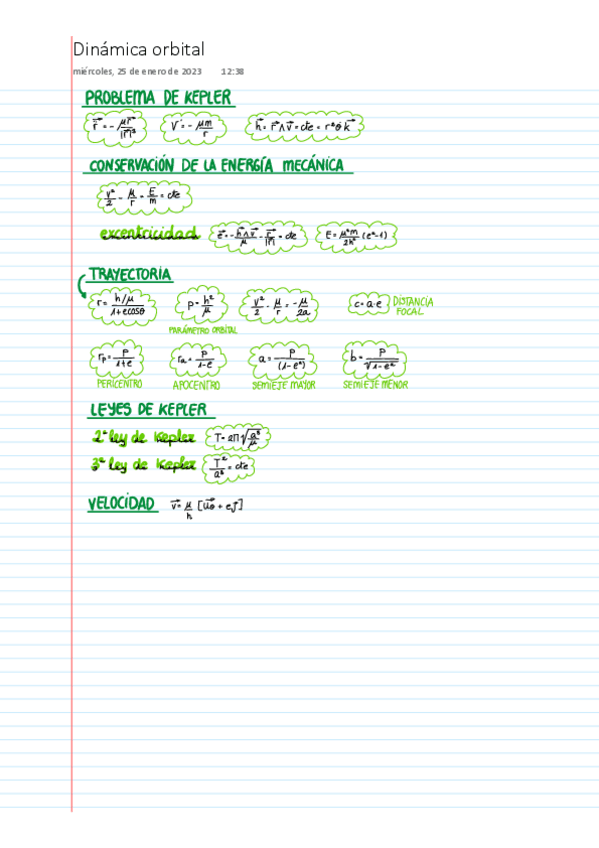 Dinámica orbital
miércoles, 25 de enero de 2023 12:38
PROBLEMA DE KEPLER
r⃗̈ = - μr⃗/|r⃗|³ V = - μm/r h⃗ = r⃗ ∧ v⃗ = cte = r²θ̇ k⃗
CONSERVACIÓN DE LA ENERGÍA MECÁNICA
v²/2 - μ/r = E/m = cte
excentricidad e⃗ = - h⃗∧v⃗/μ - r⃗/|r⃗| = cte E = μ²m/2h² (e²-1)
TRAYECTORIA
r = h²/μ / 1+ecosθ p = h²/μ v²/2 - μ/r = - μ/2a c = a·e DISTANCIA FOCAL
PARÁMETRO ORBITAL
rp = p/1+e ra = p/1-e a = p/(1-e²) b = p/√1-e²
PERICENTRO APOCENTRO SEMIEJE MAYOR SEMIEJE MENOR
LEYES DE KEPLER
2ª ley de Kepler T = 2π√a³/μ
3ª ley de Kepler T²/a³ = cte
VELOCIDAD v⃗ = μ/h [u⃗θ + ej⃗]